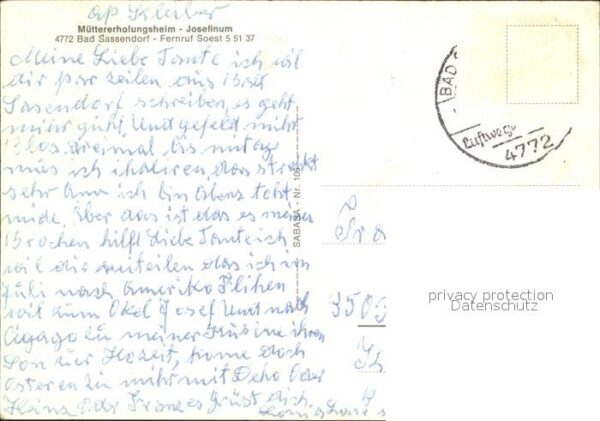 Müttererholungsheim - Josefinum
4772 Bad Sassendorf - Fernruf Soest 5 51 37
Meine Liebe Tante ich wil
dir par zeilen aus Bad
Sasendorf schreiben, es geht
mihr guht, Und gefeld mihr
Blos dreimal bis mitag
mus ich ihaliren, das
sehr An ich bin Abens toht
müde, Über das ist das es meinen
Brochen hilft Liebe Tante ich
wil dir miteilen das ich im
Juli nach Ameriko Flihen
wil zum Okel Josef Und nach
zu meiner Kusine ihren
Son zur Hozeit, kome doch
Osteren zu mihr mit Deho Oder
Heinz es Grüst dich
SABASA - Nr. 105
BAD
Luftwege
4772
3505
privacy protection
Datenschutz